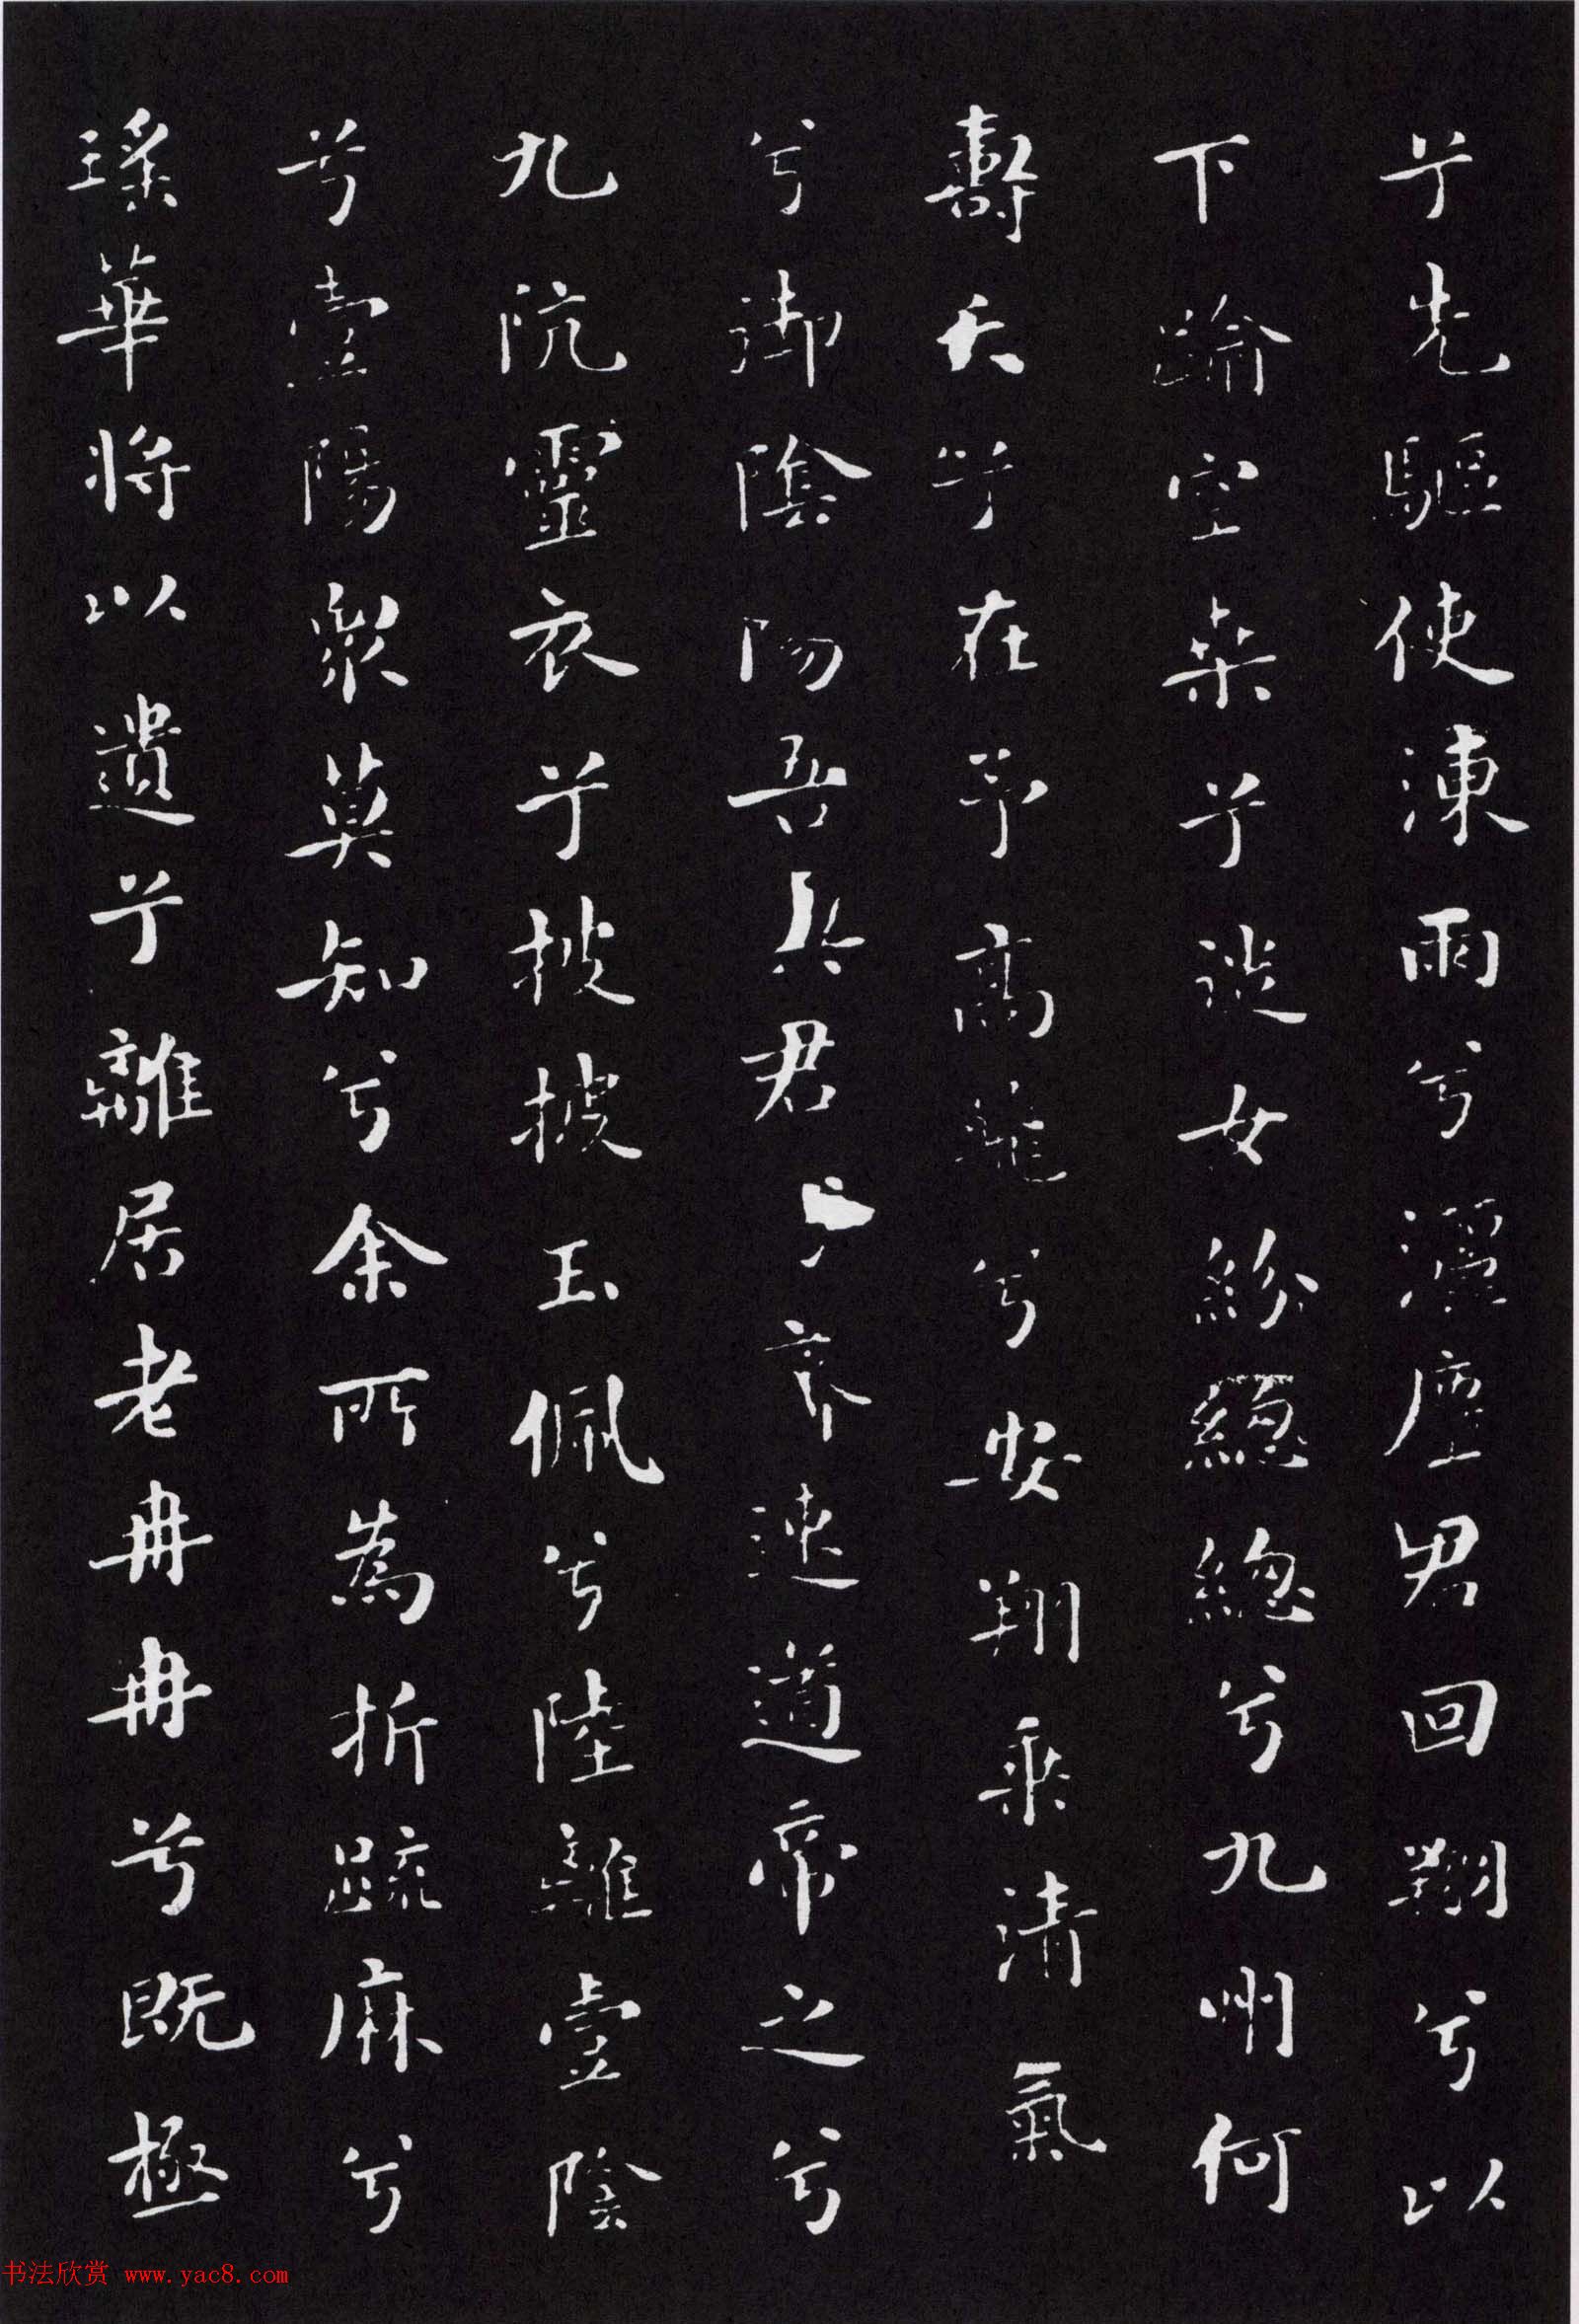 兮先驅使涷雨兮灑塵君回翔兮以
下踰空桑兮從女紛總總兮九州何
壽夭兮在予高飛兮安翔乘清氣
兮御陰陽吾與君齊速道帝之兮
九阬靈衣兮披披玉佩兮陸離壹陰
兮壹陽眾莫知兮余所為折疏麻兮
瑤華將以遺兮離居老冉冉兮既極
书法欣赏 www.yac8.com